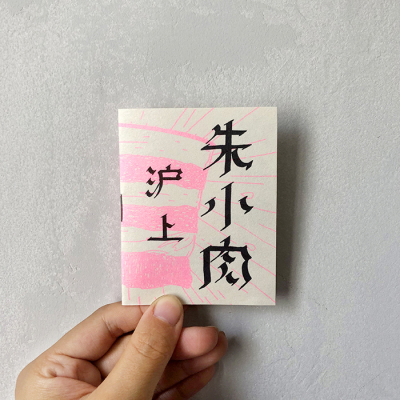 朱小肉
沪上